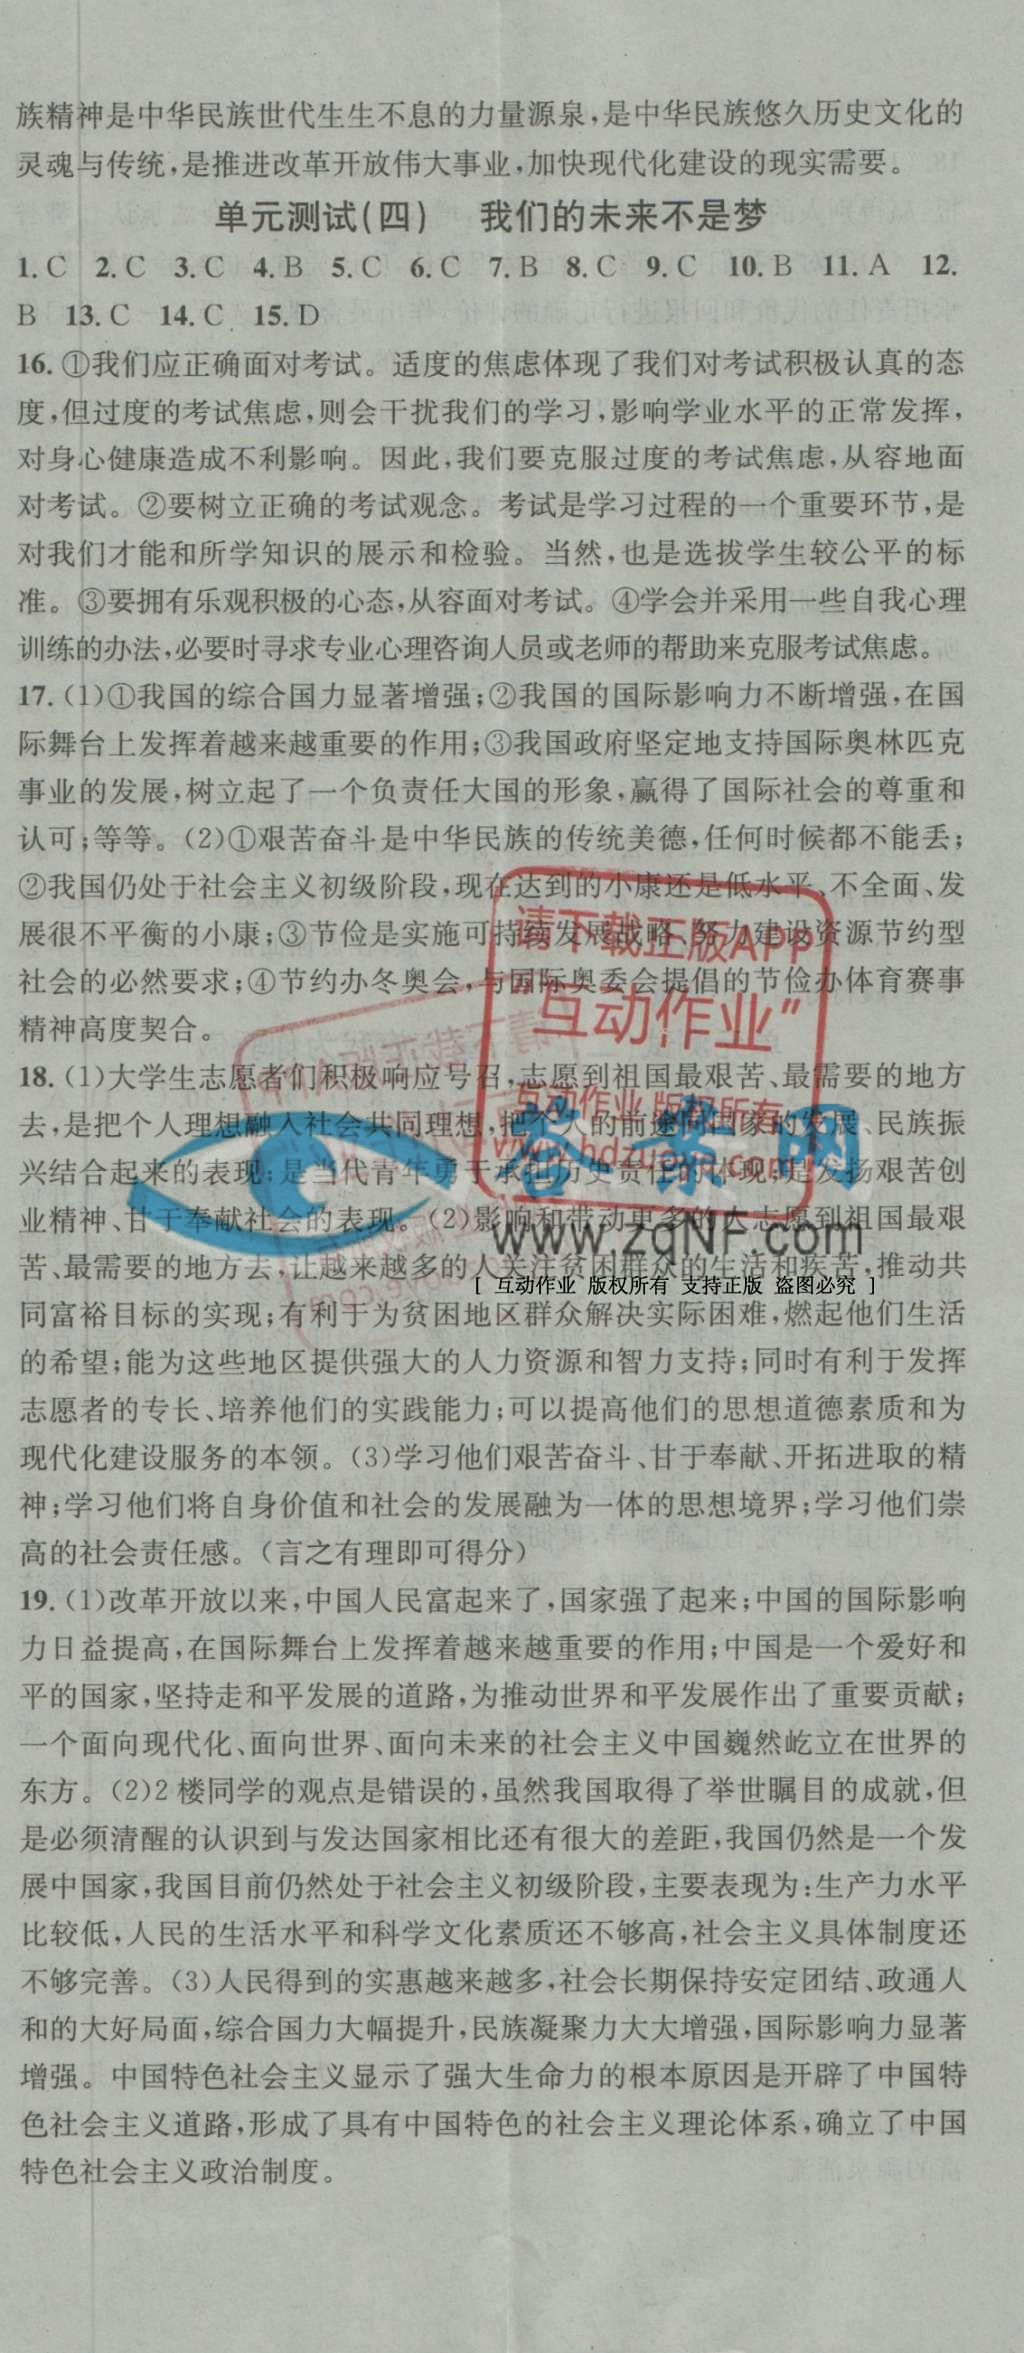 族精神是中华民族世代生生不息的力量源泉,是中华民族悠久历史文化的
灵魂与传统,是推进改革开放伟大事业,加快现代化建设的现实需要。
单元测试(四) 我们的未来不是梦
1. C 2. C 3. C 4. B 5. C 6. C 7. B 8. C 9. C 10. B 11. A 12.
B 13. C 14. C 15. D
16. ①我们应正确面对考试。适度的焦虑体现了我们对考试积极认真的态
度,但过度的考试焦虑,则会干扰我们的学习,影响学业水平的正常发挥,
对身心健康造成不利影响。因此,我们要克服过度的考试焦虑,从容地面
对考试。②要树立正确的考试观念。考试是学习过程的一个重要环节,是
对我们才能和所学知识的展示和检验。当然,也是选拔学生较公平的标
准。③要拥有乐观积极的心态,从容面对考试。④学会并采用一些自我心理
训练的办法,必要时寻求专业心理咨询人员或老师的帮助来克服考试焦虑。
17. (1)①我国的综合国力显著增强;②我国的国际影响力不断增强,在国
际舞台上发挥着越来越重要的作用;③我国政府坚定地支持国际奥林匹克
事业的发展,树立起了一个负责任大国的形象,赢得了国际社会的尊重和
认可;等等。(2)①艰苦奋斗是中华民族的传统美德,任何时候都不能丢;
②我国仍处于社会主义初级阶段,现在达到的小康还是低水平、不全面、发
展很不平衡的小康;③节俭是实施可持续发展战略、努力建设资源节约型
社会的必然要求;④节约办冬奥会,与国际奥委会提倡的节俭办体育赛事
精神高度契合。
18. (1)大学生志愿者们积极响应号召,志愿到祖国最艰苦、最需要的地方
去,是把个人理想融入社会共同理想,把个人的前途同国家的发展、民族振
兴结合起来的表现;是当代青年勇于承担历史责任的体现;是发扬艰苦创
业精神、甘于奉献社会的表现。(2)影响和带动更多的人志愿到祖国最艰
苦、最需要的地方去,让越来越多的人关注贫困群众的生活和疾苦,推动共
同富裕目标的实现;有利于为贫困地区群众解决实际困难,燃起他们生活
的希望;能为这些地区提供强大的人力资源和智力支持;同时有利于发挥
志愿者的专长、培养他们的实践能力;可以提高他们的思想道德素质和为
现代化建设服务的本领。(3)学习他们艰苦奋斗、甘于奉献、开拓进取的精
神;学习他们将自身价值和社会的发展融为一体的思想境界;学习他们崇
高的社会责任感。(言之有理即可得分)
19. (1)改革开放以来,中国人民富起来了,国家强了起来;中国的国际影响
力日益提高,在国际舞台上发挥着越来越重要的作用;中国是一个爱好和
平的国家,坚持走和平发展的道路,为推动世界和平发展作出了重要贡献;
一个面向现代化、面向世界、面向未来的社会主义中国巍然屹立在世界的
东方。(2)2 楼同学的观点是错误的,虽然我国取得了举世瞩目的成就,但
是必须清醒的认识到与发达国家相比还有很大的差距,我国仍然是一个发
展中国家,我国目前仍然处于社会主义初级阶段,主要表现为:生产力水平
比较低,人民的生活水平和科学文化素质还不够高,社会主义具体制度还
不够完善。(3)人民得到的实惠越来越多,社会长期保持安定团结、政通人
和的大好局面,综合国力大幅提升,民族凝聚力大大增强,国际影响力显著
增强。中国特色社会主义显示了强大生命力的根本原因是开辟了中国特
色社会主义道路,形成了具有中国特色的社会主义理论体系,确立了中国
特色社会主义政治制度。
请下载正版APP
"互动作业"
互动作业 版权所有
www.hdzuoye.com
答案网
www.zqNF.com
[ 互动作业 版权所有 支持正版 盗图必究 ]